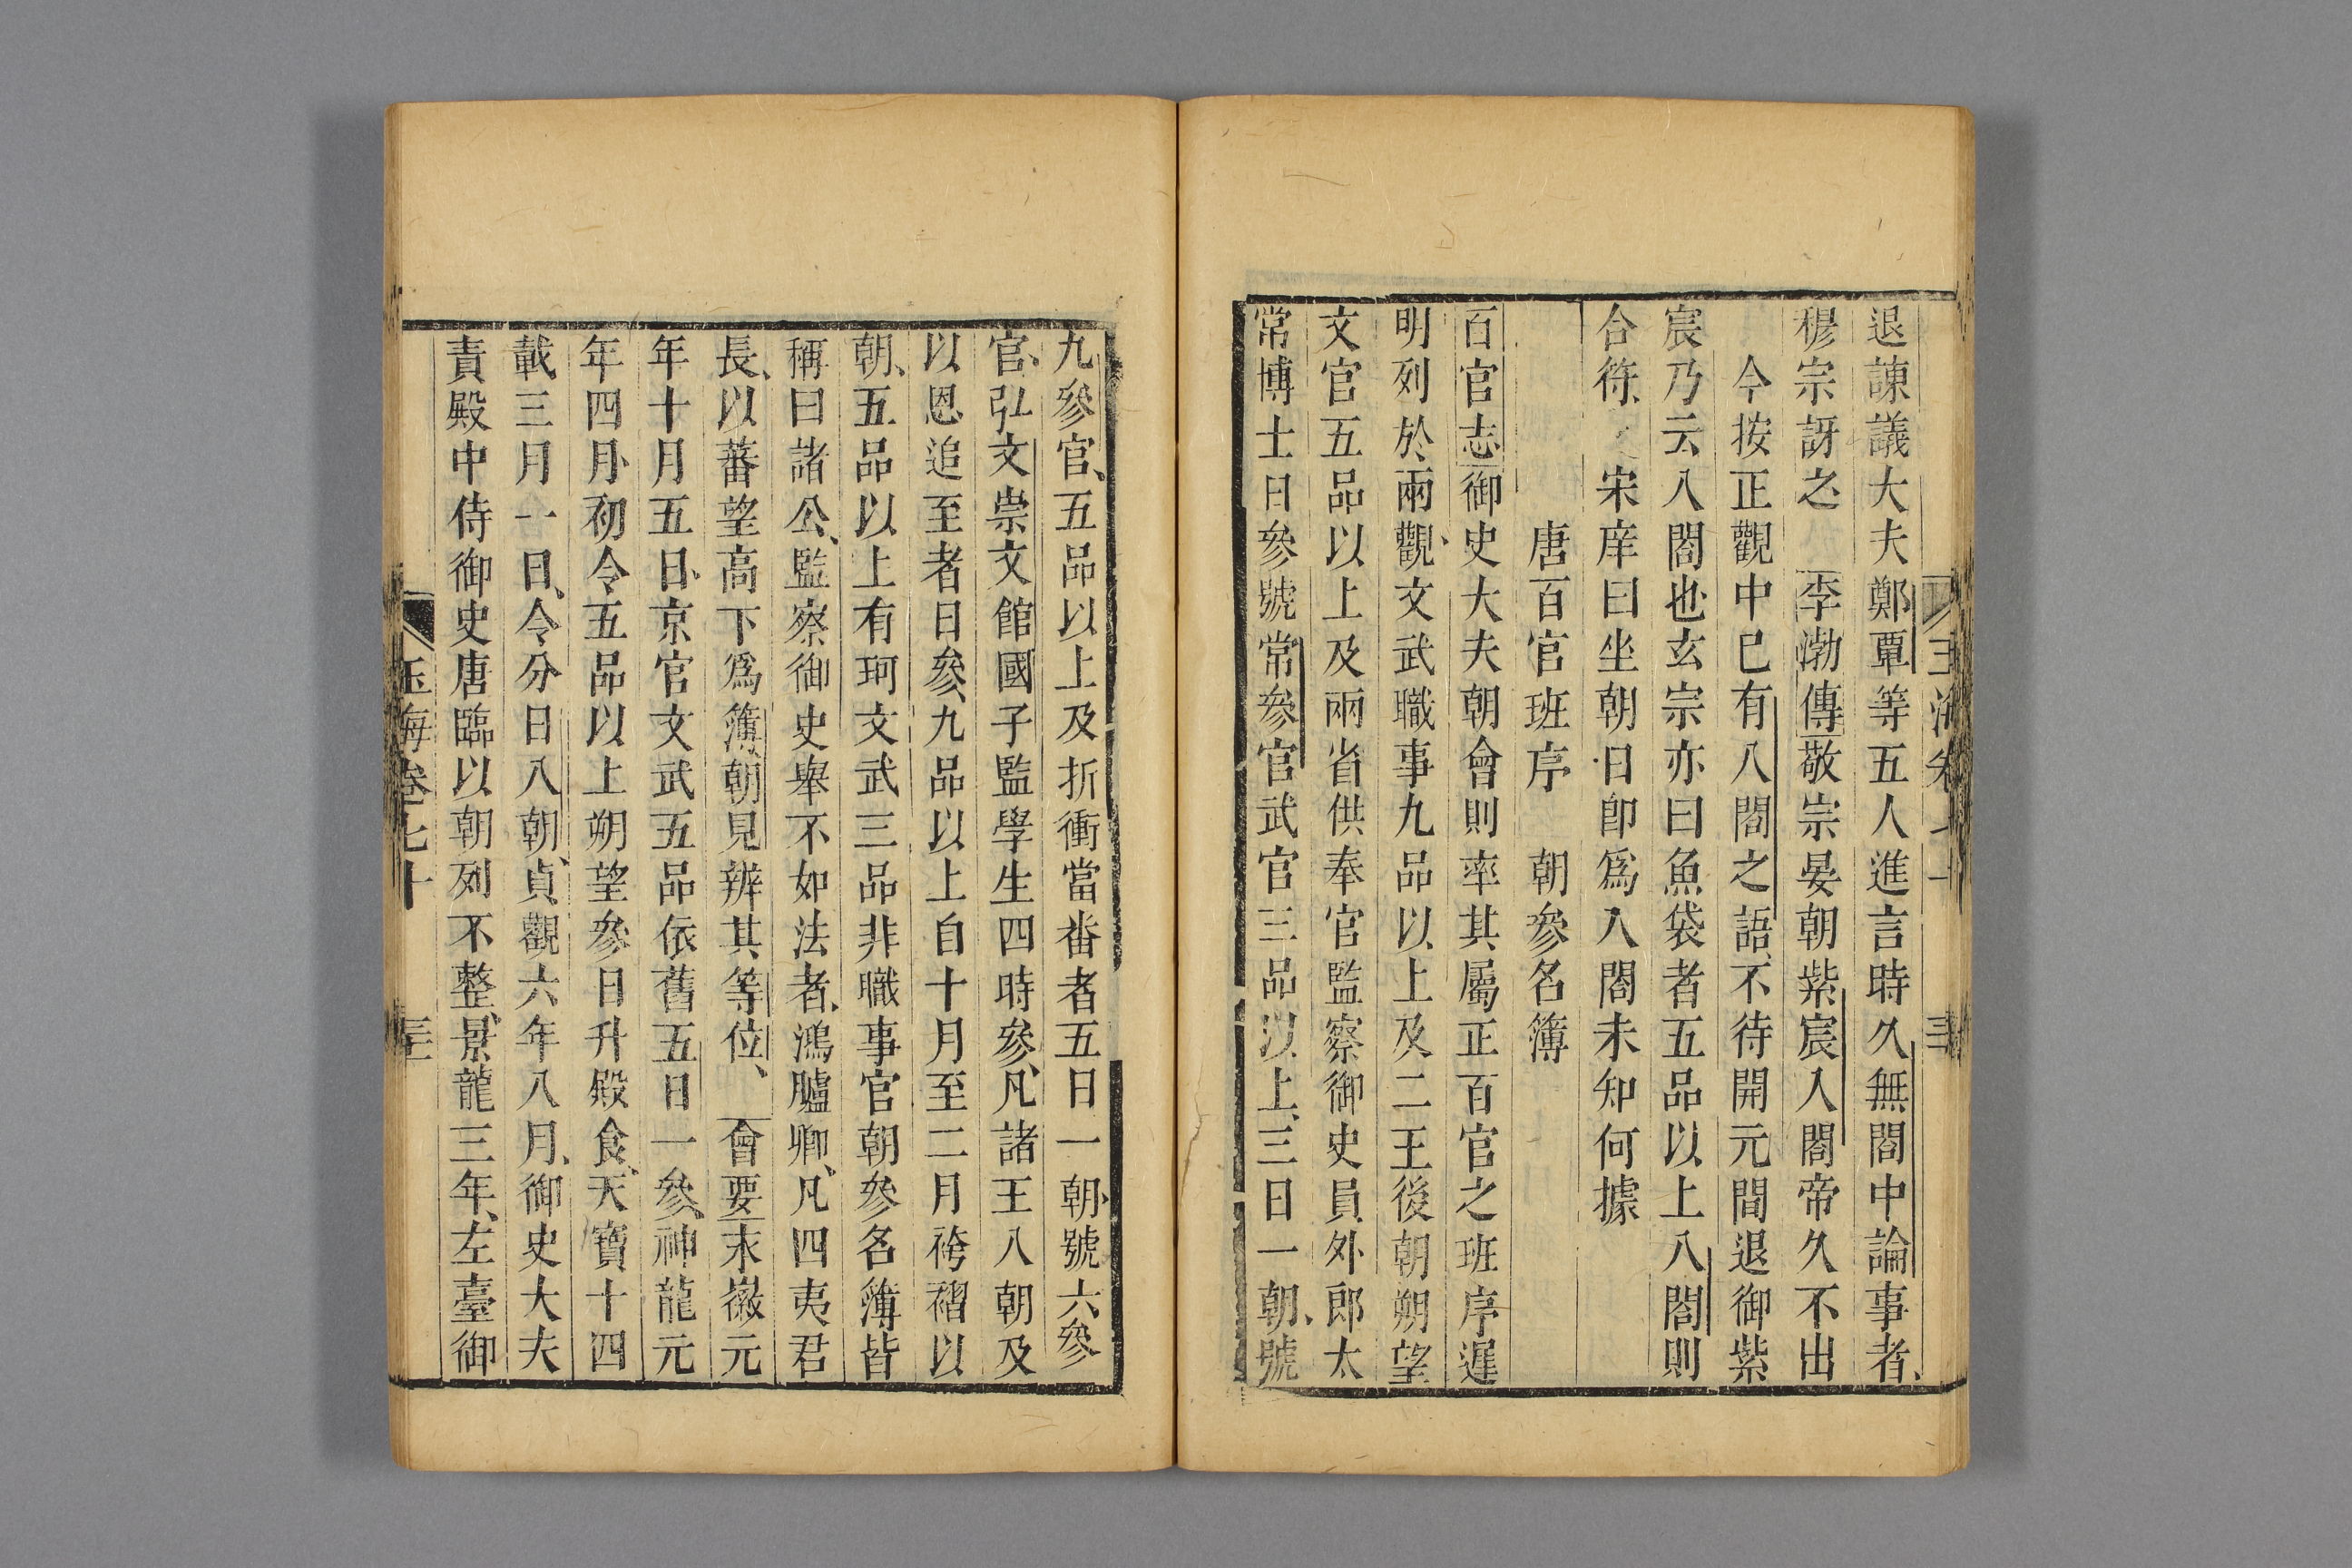 退諫議大夫鄭覃等五人進言時久無閤中論事者
穆宗訝之 李渤傳敬宗晏朝紫宸入閤帝久不出
今按正觀中巳有八閤之語不待開元間退御紫
宸乃云八閤也玄宗亦曰魚袋者五品以上八閤則
合符 宋庠曰坐朝日卽爲入閤未知何據
唐百官班序 朝參名簿
百官志御史大夫朝會則率其屬正百官之班序遲
明列於兩觀文武職事九品以上及二王後朝朔望
文官五品以上及兩省供奉官監察御史員外郎太
常博士日參號常參官武官三品以上三日一朝號
九參官五品以上及折衝當番者五日一朝號六參
官弘文崇文館國子監學生四時參凡諸王入朝及
以恩追至者日參九品以上自十月至二月袴褶以
朝五品以上有珂文武三品非職事官朝參名簿皆
稱曰諸公監察御史舉不如法者鴻臚卿凡四夷君
長以蕃望高下爲簿朝見辨其等位 會要末徽元
年十月五日京官文武五品依舊五日一參神龍元
年四月初令五品以上朔望參日升殿食天寶十四
載三月一日令分日入朝貞觀六年八月御史大夫
責殿中侍御史唐臨以朝列不整景龍三年左臺御
玉海卷七十